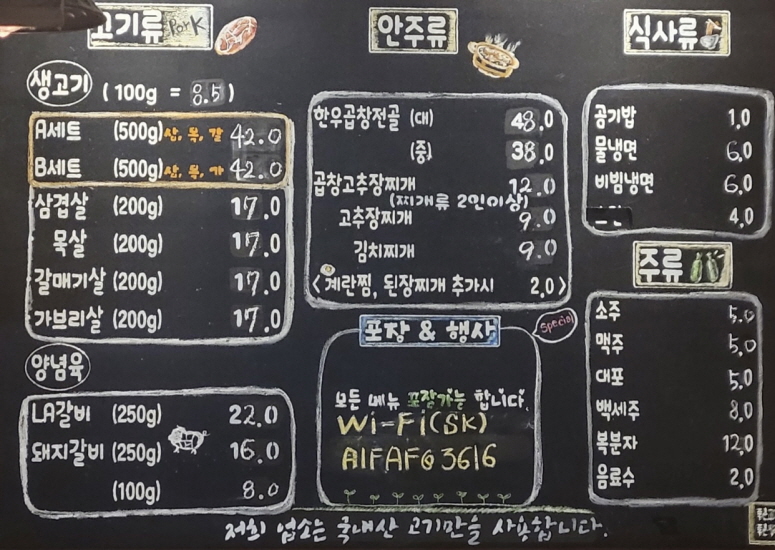 고기류 Pork
생고기 (100g = 8.5)
A세트 (500g) 삼, 목, 갈 42.0
B세트 (500g) 삼, 목, 가 42.0
삼겹살 (200g) 17.0
목살 (200g) 17.0
갈매기살 (200g) 17.0
가브리살 (200g) 17.0
양념육
LA갈비 (250g) 22.0
돼지갈비 (250g) 16.0
(100g) 8.0
안주류
한우곱창전골 (대) 48.0
(중) 38.0
곱창고추장찌개 12.0
(찌개류 2인이상)
고추장찌개 9.0
김치찌개 9.0
< 계란찜, 된장찌개 추가시 2.0 >
포장 & 행사 special
모든 메뉴 포장가능 합니다.
Wi-Fi(SK)
AIFAF@3616
식사류
공기밥 1.0
물냉면 6.0
비빔냉면 6.0
4.0
주류
소주 5.0
맥주 5.0
대포 5.0
백세주 8.0
복분자 12.0
음료수 2.0
저희 업소는 국내산 고기만을 사용합니다.